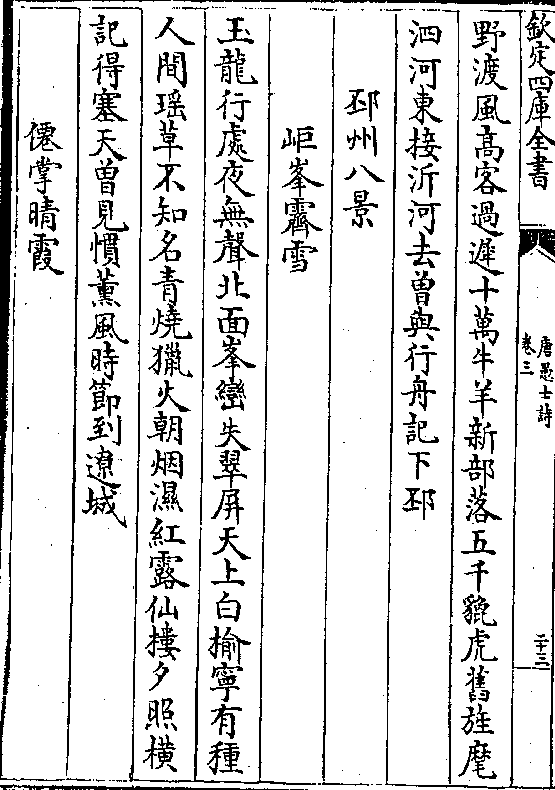 欽定四庫全書
唐愚士詩
卷三
二十三
野渡風高客過遲十萬牛羊新部落五千貔虎舊旌麾
泗河東接沂河去曾與行舟記下邳
邳州八景
岠峯霽雪
玉龍行處夜無聲北面峯巒失翠屏天上白榆寧有種
人間瑶草不知名青燒獵火朝烟濕紅露仙樓夕照橫
記得塞天曾見慣薰風時節到遼城
僊掌晴霞